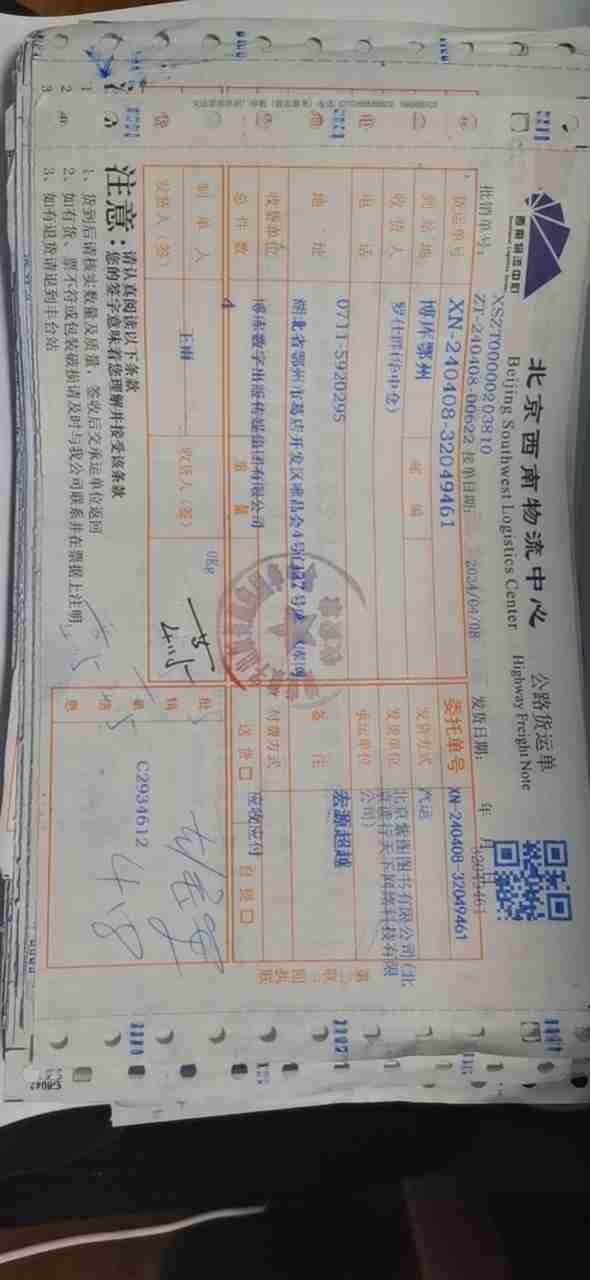 西南物流中心
北京西南物流中心
Beijing Southwest Logistics Center
公路货运单
Highway Freight Note
批销单号:
XSZT00000203810
ZT-240408-00622 接单日期: 2024/04/08 发货日期: 年 月
32049461
货运单号 XN-240408-32049461 委托单号 XN-240408-32049461
到站地 博库鄂州 邮编 发货方式 汽运
收货人 发货单位 北京紫图图书有限公司(北
天下网络科技有限
公司)
电话 0711-5920295 承运单位
地址 备注 宏源超越
收货单位 博库数字出版传媒集团有限公司 付费方式 应收应付
总件数 4 重量 0Kg 送货 自提
制单人 王雨 收货人(签)
发货人(签)
批销单信息
C2934612
4.18
注意:
请认真阅读以下条款
您的签字意味着您理解并接受该条款
1、货到后请核实数量及质量,签收后交承运单位返回
2、如有货、票不符或包装破损请及时与我公司联系并在票据上注明
3、如有退货请退到丰台站